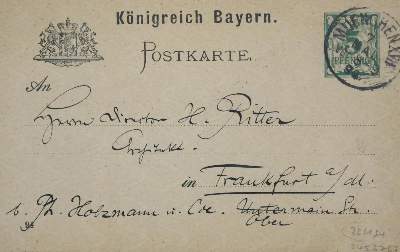 Königreich Bayern.
POSTKARTE.
MUENCHEN
5
PFENNIG
An
Herrn Director H. Ritter
Architekt.
in Frankfurt a/M.
b. Ph. Holzmann u. Cie. Untermain Str.
Ober